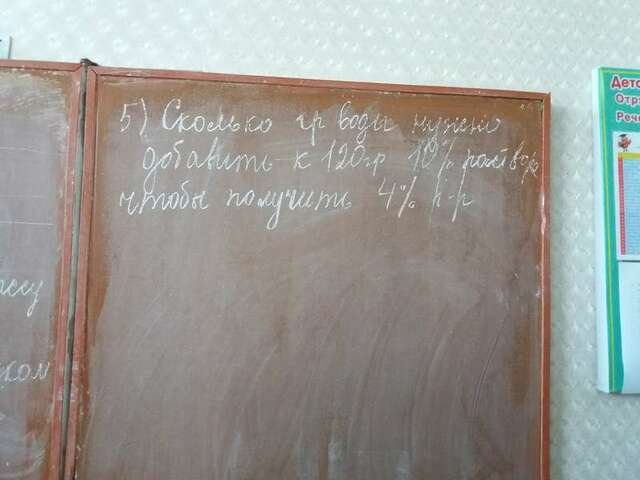 5) Сколько гр воды нужно
добавить к 120гр 10% раствор
чтобы получить 4% р-р
ссу
ком
Дето
Отр
Рече